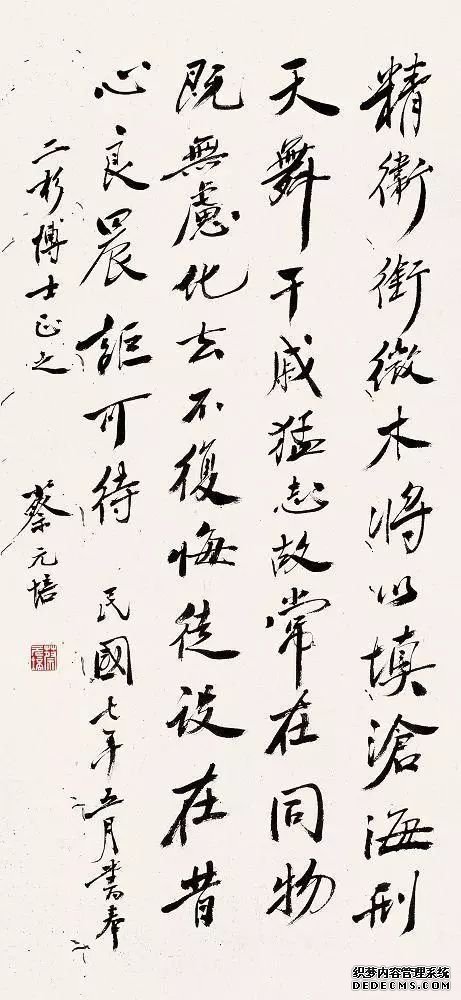 精衛銜微木將以填滄海刑
天舞干戚猛志故常在同物
既無慮化去不復悔徒設在昔
心良晨詎可待 民國七年五月書奉
二杉博士正之 蔡元培
织梦内容管理系统
DEDECMS.COM